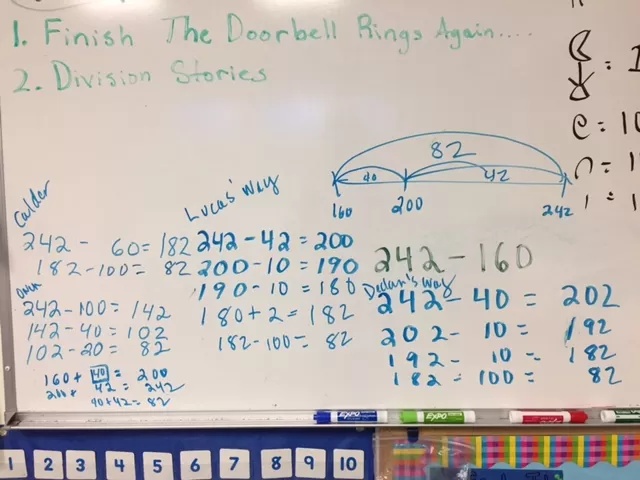 1. Finish The Doorbell Rings Again....
2. Division Stories
= 1
e = 10
∩ = 1
1 = 1
82
40
42
160
200
242
Calder
242 - 60 = 182
182 - 100 = 82
Own
242 - 100 = 142
142 - 40 = 102
102 - 20 = 82
160 + 40 = 200
200 + 42 = 242
40 + 42 = 82
Lucas' Way
242 - 42 = 200
200 - 10 = 190
190 - 10 = 180
180 + 2 = 182
182 - 100 = 82
242 - 160
Declan's Way
242 - 40 = 202
202 - 10 = 192
192 - 10 = 182
182 - 100 = 82
EXPO
EXPO
EXPO
1 2 3 4 5 6 7 8 9 10